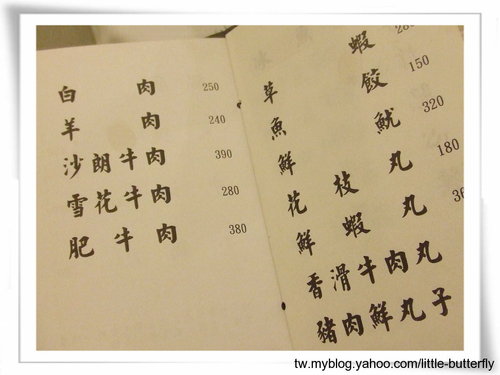 白肉 250
羊肉 240
沙朗牛肉 390
雪花牛肉 280
肥牛肉 380
草蝦
魚餃 150
鮮魷 320
花枝丸 180
鮮蝦丸
香滑牛肉丸
豬肉鮮丸子
tw.myblog.yahoo.com/little-butterfly